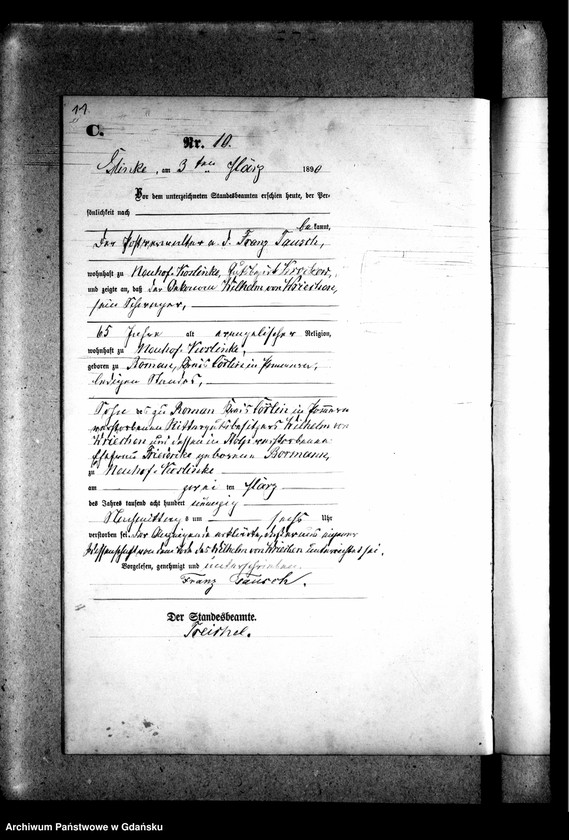 11.
C.
Nr. 10.
am 3ten März 1890
Vor dem unterzeichneten Standesbeamten erschien heute, der Per-
sönlichkeit nach
bekannt,
der Postverwalter a. D. Franz Tausch,
wohnhaft zu Neuhof-Koslinka, Gutsbezirk
und zeigte an, daß der Oekonom Wilhelm von Kriechen,
sein Schwager,
65 Jahre alt evangelischer Religion,
wohnhaft zu Neuhof-Koslinka,
geboren zu Roman, Kreis Cörlin in Pommern,
ledigen Standes,
Sohn des zu Roman Kreis Cörlin in Pommern
verstorbenen Rittergutsbesitzers Wilhelm von
Kriechen und dessen in verstorbenen
Ehefrau Friederike geborene Bormann,
zu Neuhof-Koslinka
am zwei ten März
des Jahres tausend acht hundert neunzig
Nachmittags um sechs Uhr
verstorben sei. Der Anzeigende erklärte, daß er aus eigener
Wissenschaft von dem Tode des Wilhelm von Kriechen unterrichtet sei.
Vorgelesen, genehmigt und unterschrieben
Franz Tausch.
Der Standesbeamte.
Treichel.
Archiwum Państwowe w Gdańsku